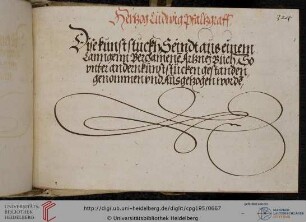 Hertzog Ludwig Pfaltzgraff
Dye kunst stuckh Seindt aus einem
Lanngem Bergamenem Artzney Buch So
vnter andern kunst stucken gestanden
genommen vnd Ausgezogen worden
UNIVERSITÄTS-
BIBLIOTHEK
HEIDELBERG
http://digi.ub.uni-heidelberg.de/diglit/cpg195/0667
© Universitätsbibliothek Heidelberg